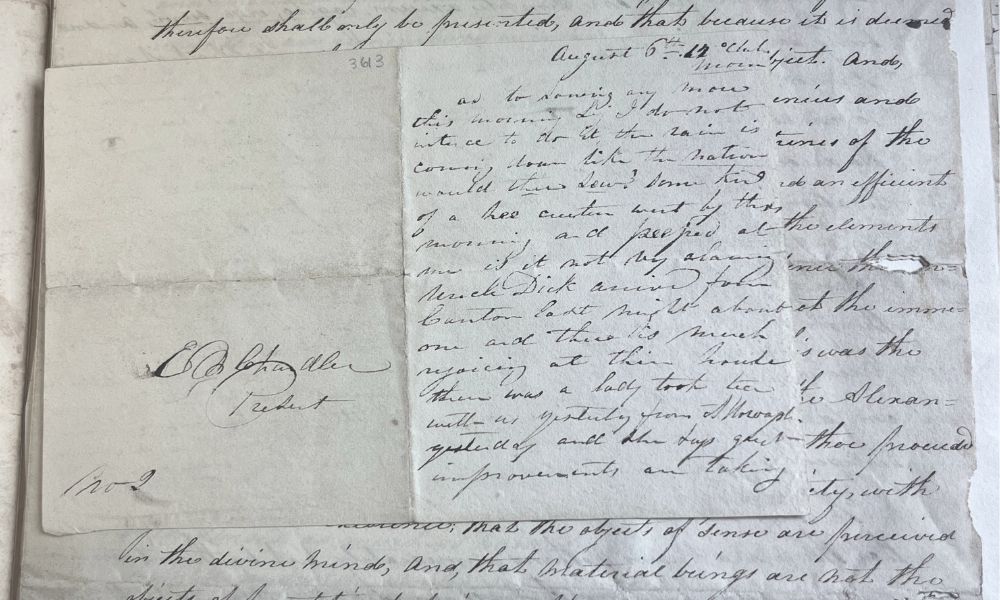 therefore shall only be presented, and that because it is deemed
3613
August 6th 12 oClock
morn
ject. And,
as to sowing any more
this morning Sr. I do not
intend to do it the rain is
coming down like the nation
would thee sow? some kind
of a hee critter went by this
morning and peeped at
me is it not
Uncle Dick arrived from
Canton last night about
one and there is much
rejoicing at this house
there was a lady took tea
with us yesterday from
yesterday and she says great
improvements are taking
E D Chandler
Present
No 2
and
of the
d an efficient
the elements
at the imme-
s was the
Alexan=
thor proceed
ity, with
that the objects of sense are perceived
in the divine mind, and, that material beings are not the
objects of